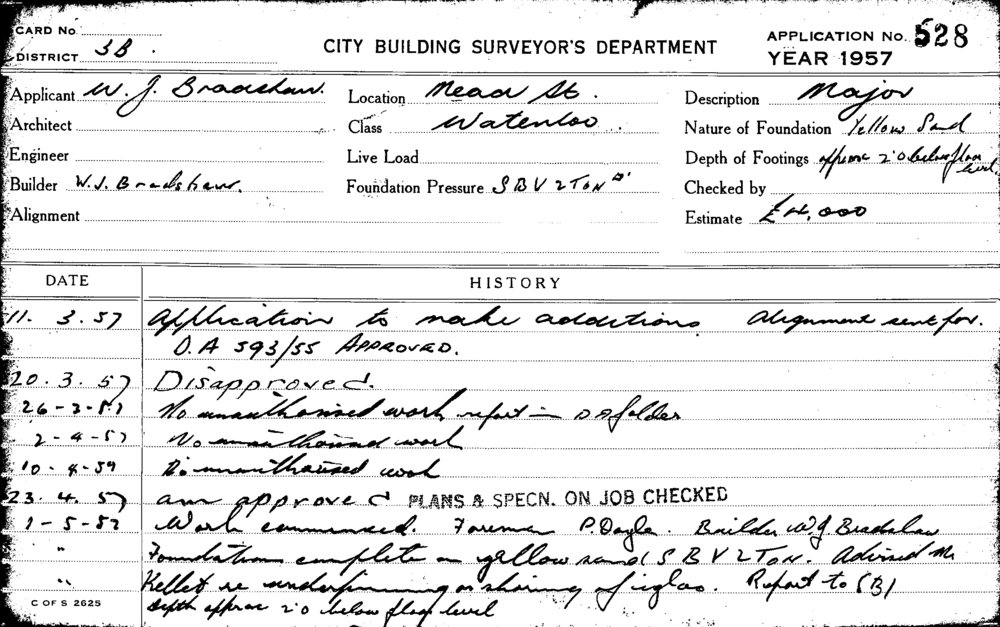 CARD No.
DISTRICT 3B.
CITY BUILDING SURVEYOR'S DEPARTMENT
APPLICATION No. 528
YEAR 1957
Applicant W. J. Bradshaw. Location Mead St. Description Major
Architect Class Waterloo. Nature of Foundation Yellow Sand
Engineer Live Load Depth of Footings approx 2'0 below floor level.
Builder W. J. Bradshaw. Foundation Pressure S B V 2 TON □' Checked by
Alignment Estimate £4,000
DATE HISTORY
11. 3. 57 Application to make additions. Alignment sent for.
D.A 593/55 APPROVED.
20. 3. 57 Disapproved.
26-3-57 No unauthorised work report in DA folder
2-4-57 No unauthorised work
10-4-57 No unauthorised work
23. 4. 57 am approved PLANS & SPECN. ON JOB CHECKED
1-5-57 Work commenced. Foreman P. Doyle. Builder W J Bradshaw
" Foundations complete on yellow sand S B V 2 TON. Advised Mr
" Kellet re underpinning or shoring of Report to CBI
depth approx 2'0 below floor level
C OF S 2625